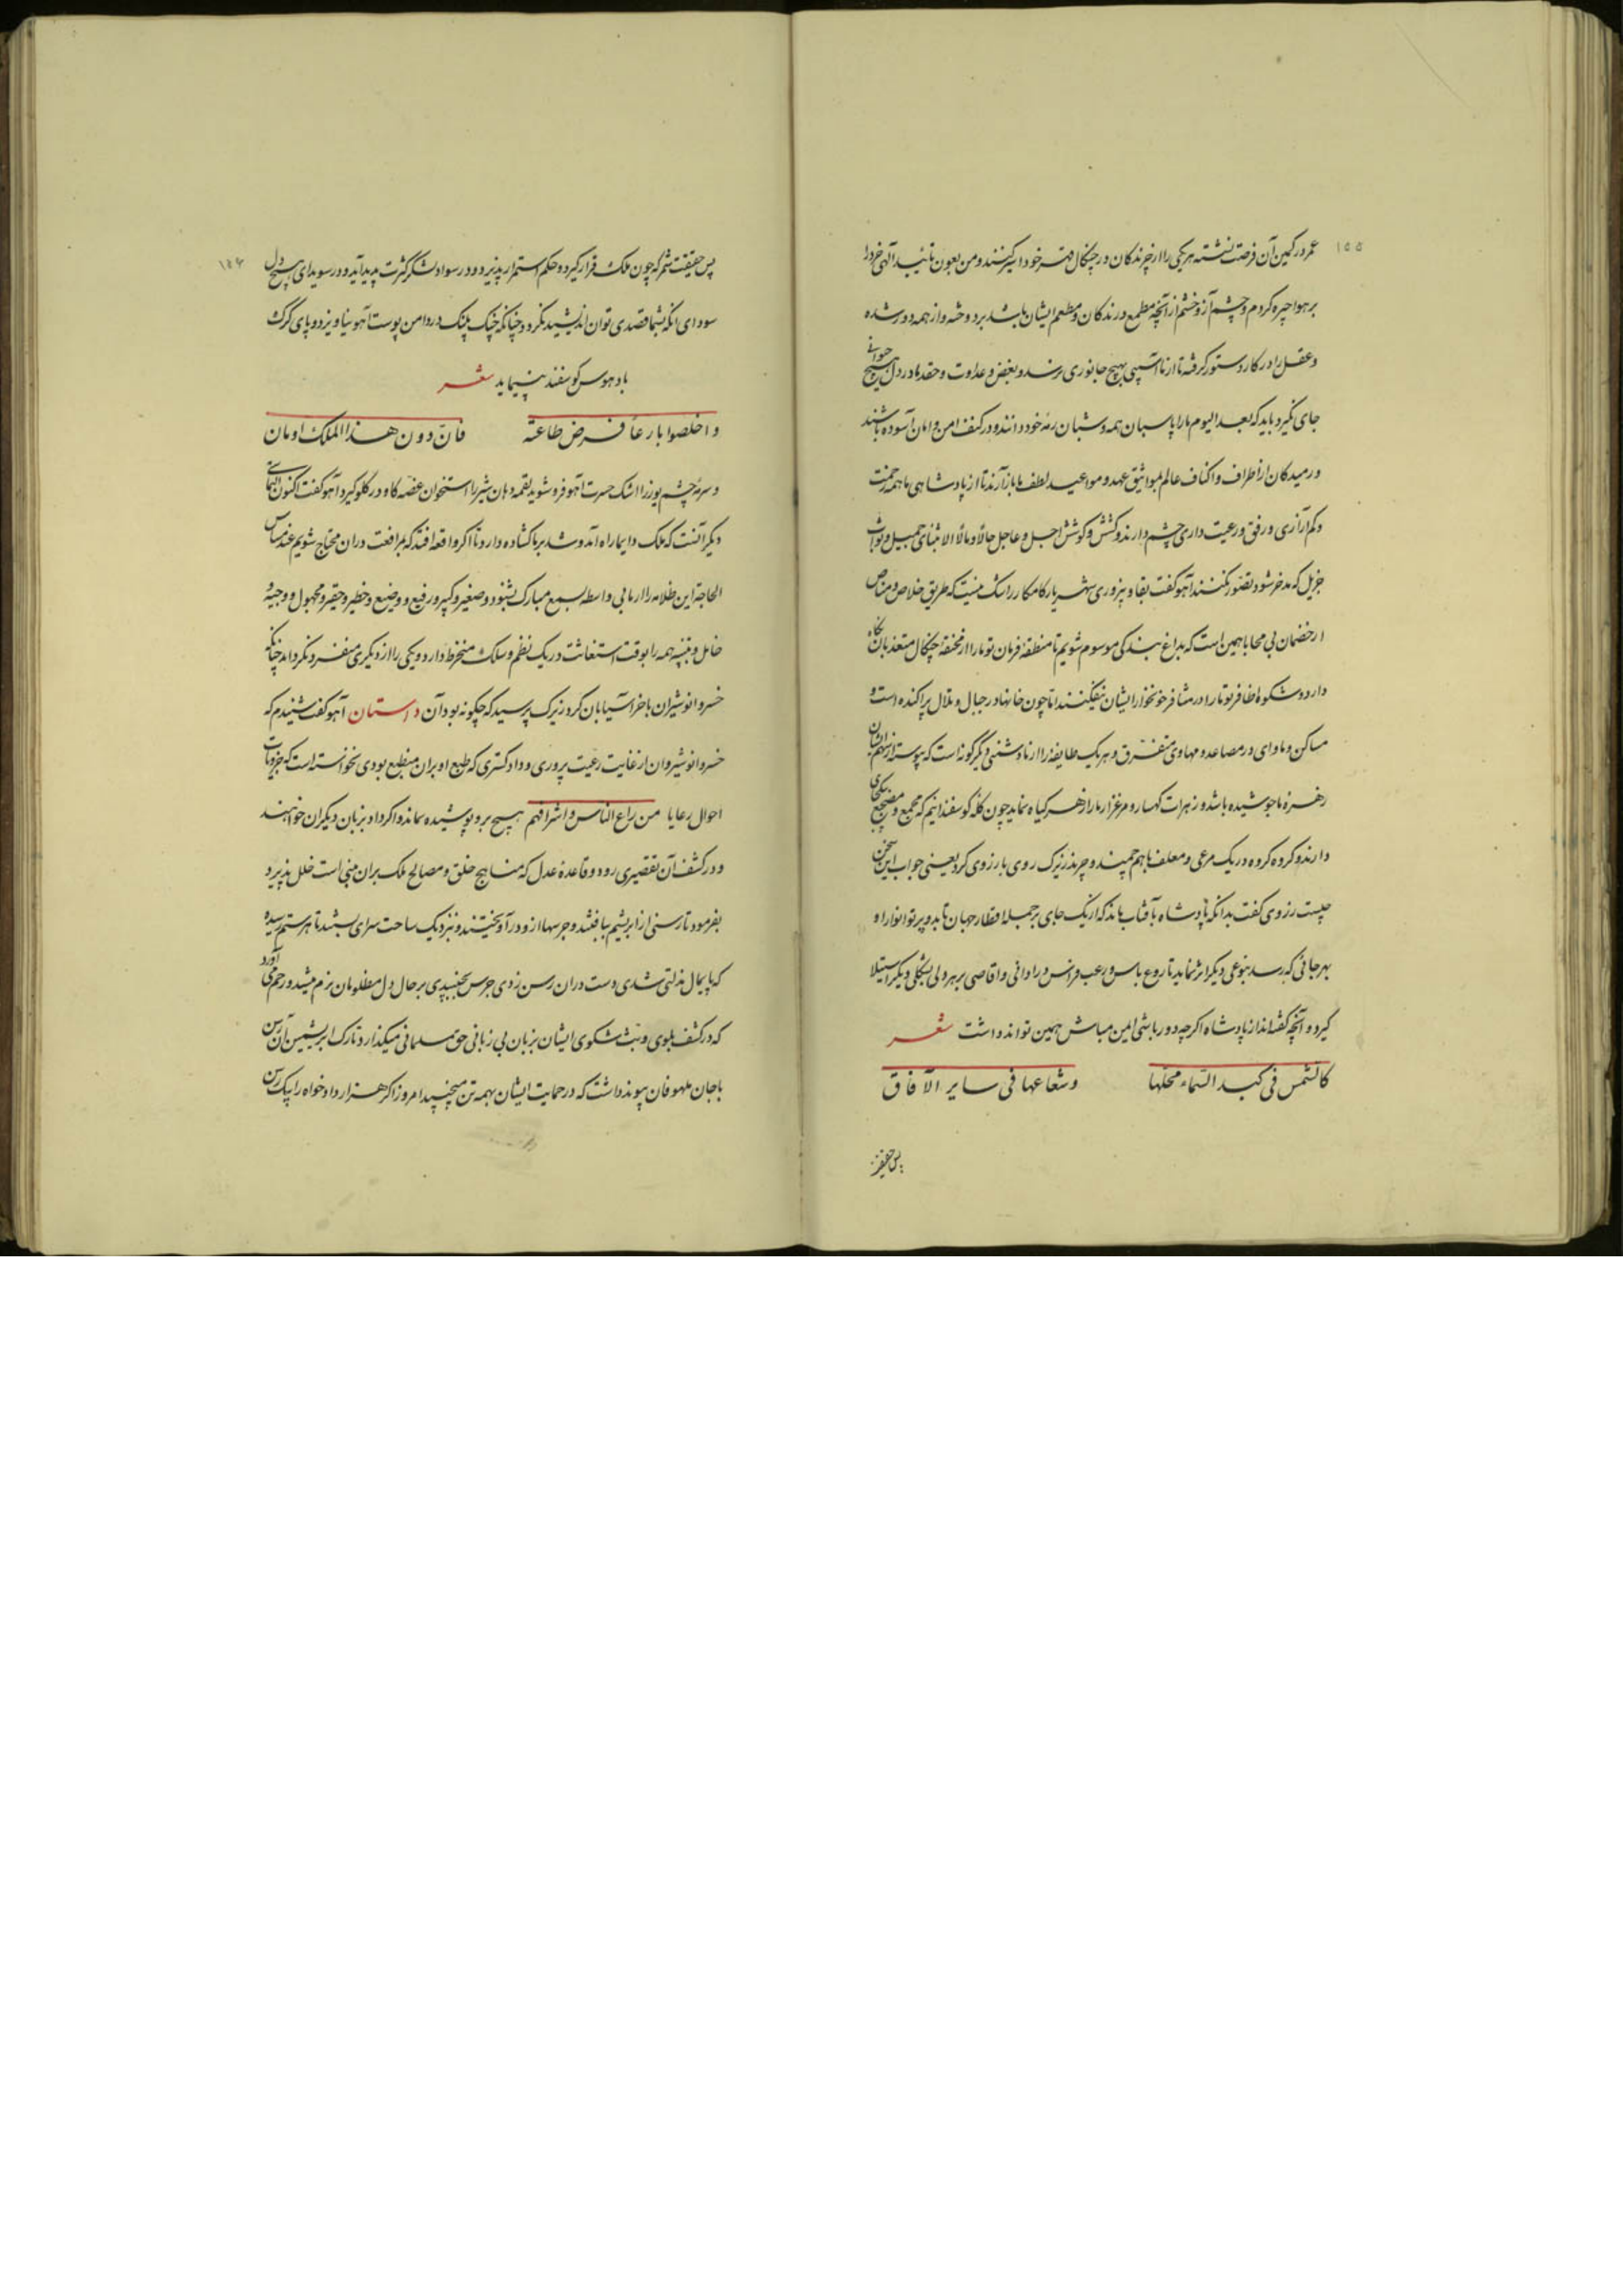 ۱۵۵
عمر در کمین آن فرصت نشسته هر یکی را از چرندگان در چنگال قهر خود اسیر کنند و من بعون تائید الهی خرد را
بر هوا چیره کردم و چشم آز و خشم از آنچه مطمع درندگان و مطعم ایشان باشد بردوخته و از همه دور شده
و عقل را در کار دستور گرفته تا از ما آسیبی بهیچ جانوری نرسد و بغض و عداوت و حقد ما در دل هیچ حیوانی
جای نگیرد باید که بعد الیوم ما را پاسبان همه و شبان رمه خود دانند و در کنف امن و امان آسوده باشند
و رمیدگان از اطراف و اکناف عالم بمواثیق عهد و مواعید لطف ما بازآرند تا از پادشاهی ما همه رحمت
و کم آزاری و رفق و رعیت داری چشم دارند و کنش و کوشش اجل و عاجل حالا و مالا الا بثنای جمیل و ثواب
جزیل که مدخر شود تصور نکنند آهو گفت بقا و پیروزی شهریار کامکار را شک نیست که طریق خلاص و مناص
از خصمان بی محابا همین است که بداغ بندگی موسوم شویم تا منطقه فرمان تو ما را از مخنقه چنگال متعدیان نگاه
دارد و شکوه اظافر تو ما را در مشافر خونخوار ایشان نیفکند اما چون خانها در جبال و تلال پراکنده است و
مساکن و ماوای در مصاعد و مهاوی متفرق و هر یک طایفه را از ما دشمنی دیگرگونه است که پیوسته از سهم ایشان
زهره ما جوشیده باشد و زهرات کهسار و مرغزار ما را زهر گیاه نماید چون گله گوسفندانیم که مجمع و مضجع یکجای
دارند و گروه گروه در یک مرعی و معلف با هم چمند و چرند زیرک روی با رزوی کرد یعنی جواب این سخن
چیست رزوی گفت بدانکه پادشاه بآفتاب ماند که از یک جای بر جمله اقطار جهان تابد و پرتو انوار او
بهر جائی که رسد بنوعی دیگر اثر نماید تا روع باس و رعب هراس در ادانی و اقاصی بر هر دلی بشکلی دیگر استیلا
گیرد و آنچه گفته‌اند از پادشاه اگرچه دور باشی ایمن مباش همین تواند داشت شعر
کالشمس فی کبد السماء محلها و شعاعها فی سایر الآفاق
پس حقیقت
۱۵۶
پس حقیقت شمر که چون ملک قرار گیرد و حکم استمرار پذیرد و در سواد لشکر کثرت پدید آید و در سویدای هیچ دل
سودای آنکه بشما قصدی توان اندیشید نگردد چنانکه چنگ پلنگ در دامن پوست آهو نیاویزد و پای گرگ
باد هوس گوسفند نپیماید شعر
و اخلصوا یا رعا فرض طاعته فان دون هذا الملک اومان
و سرمه چشم یوز را اشک حسرت آهو فرو شوید لقمه دهان شیر را استخوان غصه گاو در گلو گیرد آهو گفت اکنون التماسی
دیگر آنست که ملک دایما راه آمد و شد بر ما گشاده دارد تا اگر واقعه افتد که بمرافعت در آن محتاج شویم عند مساس
الحاجه این ظلامه را از ما بی واسطه بسمع مبارک بشنود و صغیر و کبیر و رفیع و وضیع و خطیر و حقیر و مجهول و وجیه و
خامل و نبیه همه را بوقت استغاثت در یک نظم و سلک منخرط دارد و یکی را از دیگری متفرد نگرداند چنانکه
خسرو انوشیران با خر آسیابان کرد زیرک پرسید که چگونه بود آن داستان آهو گفت شنیدم که
خسرو انوشیروان از غایت رعیت پروری و دادگستری که طبع او بران منطبع بودی نخواسته است که جزویات
احوال رعایا من راع الناس و اشرافهم هیچ برو پوشیده بماند و اگر داد بزبان دیگران خواهند
و در کشف آن تقصیری رود و قاعده عدل که مناهج خلق و مصالح ملک بران مبنی است خلل پذیرد
بفرمود تا رسنی از ابریشم ببافتند و جرسها ازو درآویختند و نزدیک ساحت سرای ببستند تا هر ستم رسیده
که پایمال مذلتی شدی دست در آن رسن زدی جرس بجنبیدی بر حال دل مظلومان نرم میشد و رحم می آورد
که در کشف بلوی و بث شکوی ایشان بزبان بی زبانی حق مسلمانی میگذارد و تارک ابریشمین آن رسن
با جان ملهوفان پیوند داشت که در حمایت ایشان بهمه تن میجنبید امروز اگر هزار دادخواه را بیک رسن